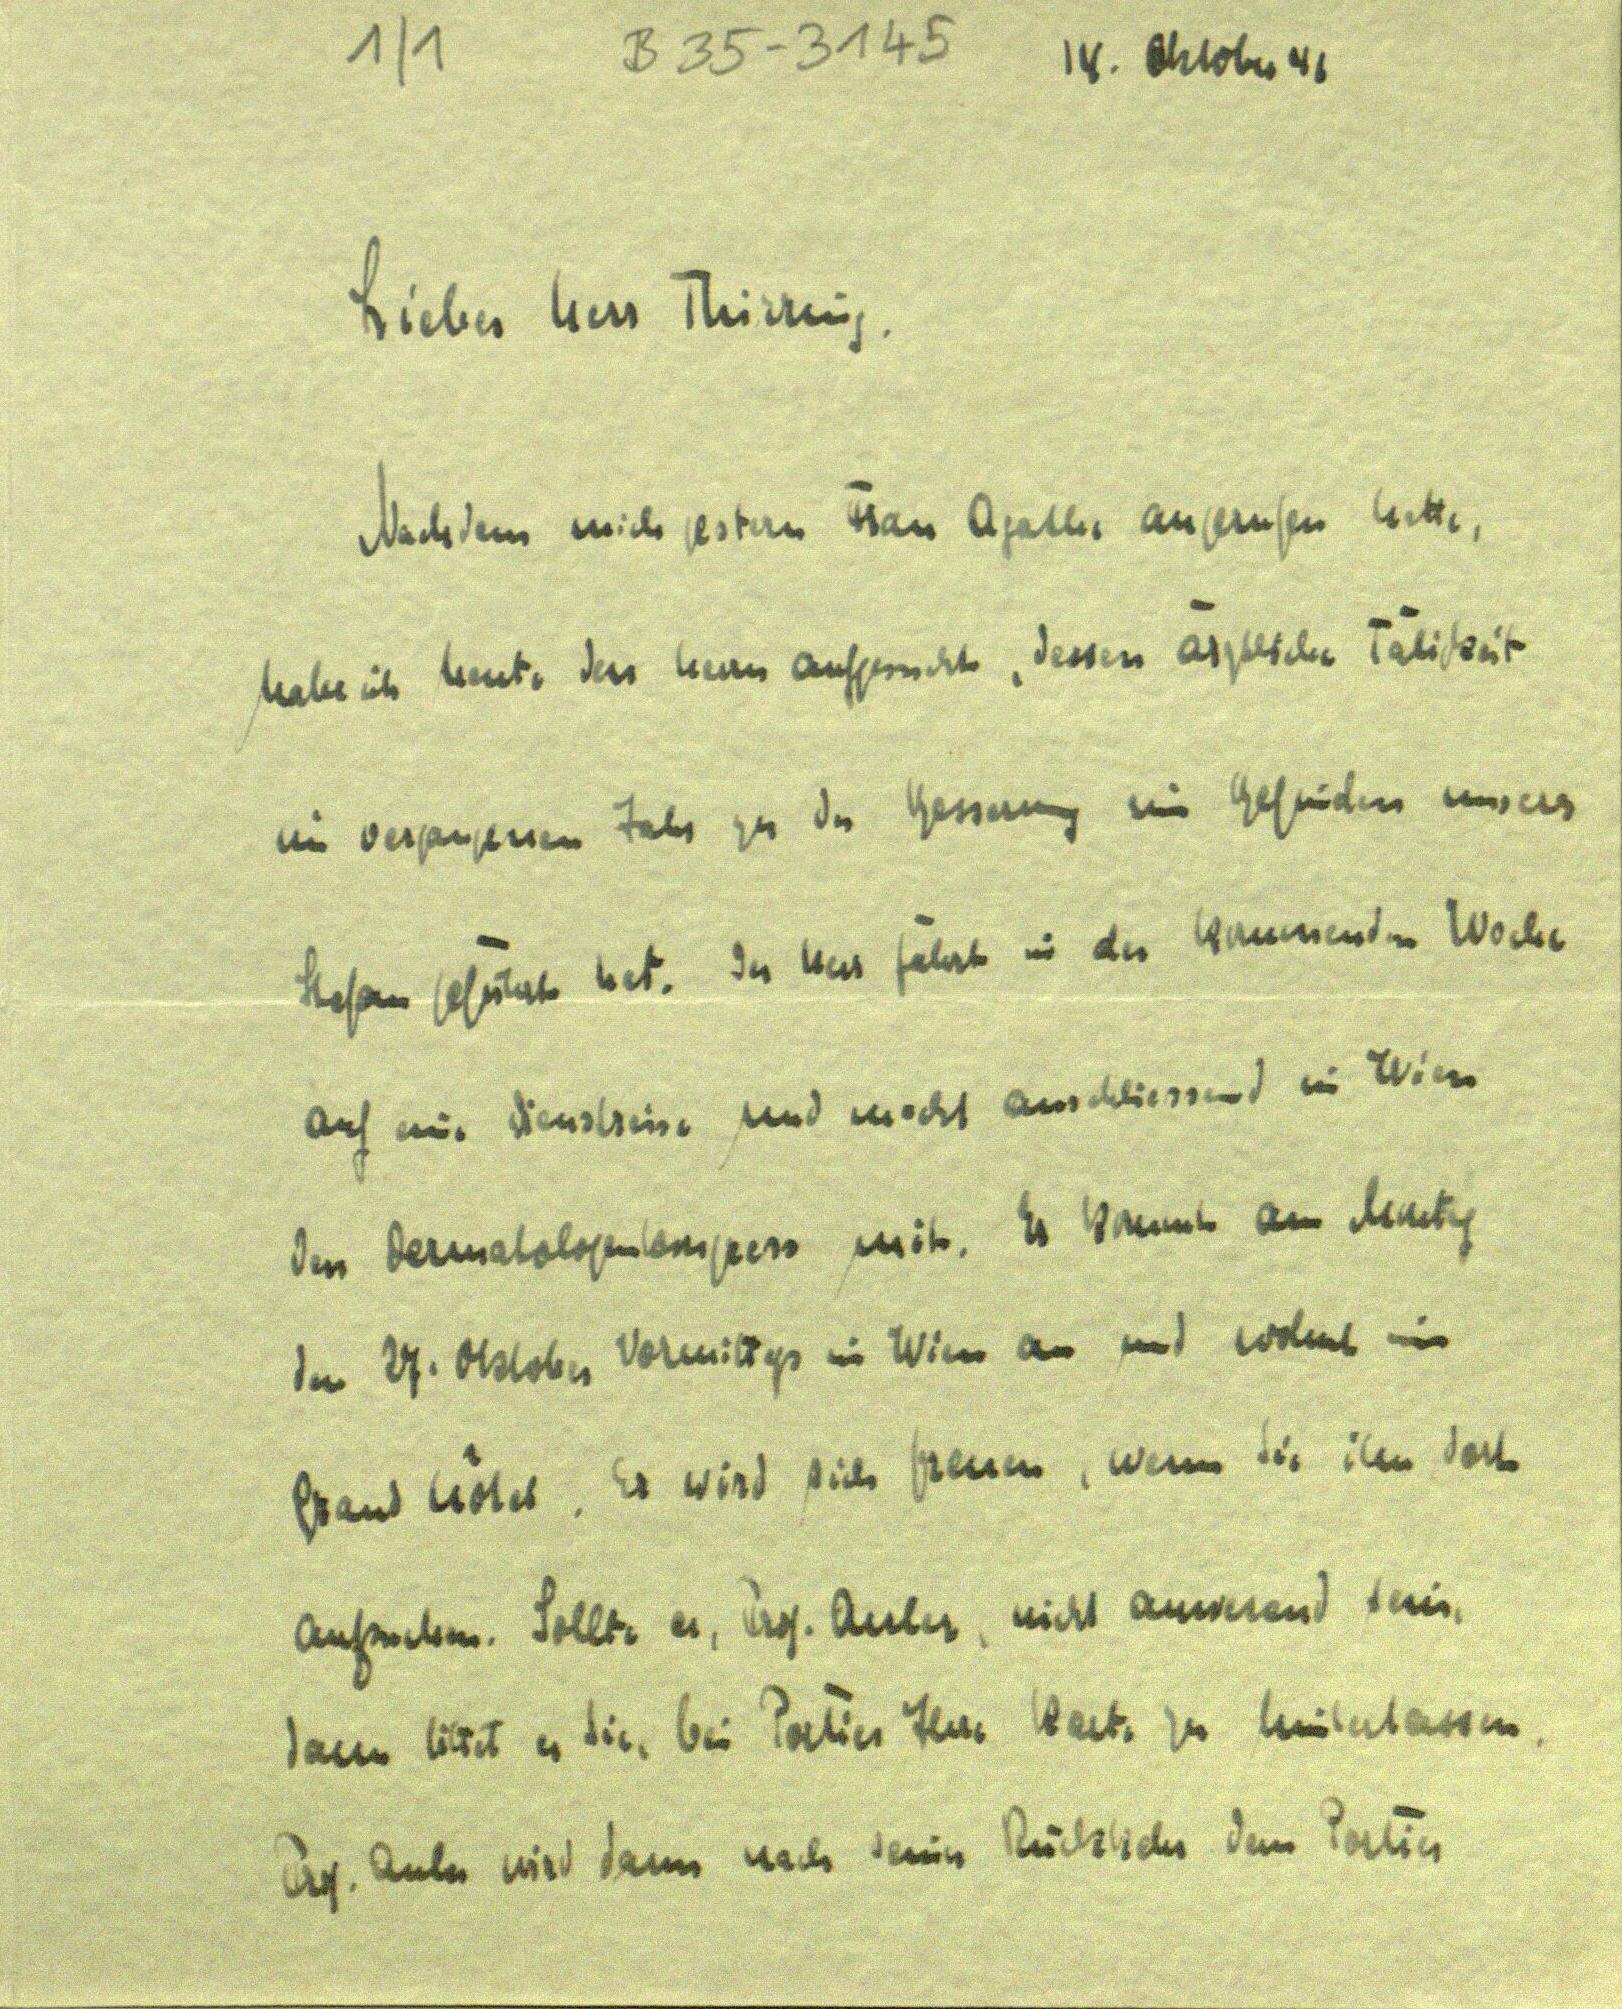 1/1 B 35-3145 18. Oktober 41
Lieber Herr Thirring.
Nachdem mich gestern Frau Agathe angerufen hatte,
habe ich heute den Herrn aufgesucht, dessen ärztliche Tätigkeit
im vergangenen Jahr zu der Besserung im Befinden unseres
Stefan geführt hat. Der Herr fährt in der kommenden Woche
auf eine Dienstreise und macht anschliessend in Wien
den Dermatologenkongress mit. Er kommt am Montag
den 27. Oktober Vormittags in Wien an und wohnt im
Grand Hôtel. Er wird sich freuen, wenn Sie ihn dort
aufsuchen. Sollte er, Prof. Auler, nicht anwesend sein,
dann bittet er Sie, bei Portier Ihre Karte zu hinterlassen.
Prof. Auler wird dann nach seiner Rückkehr dem Portier